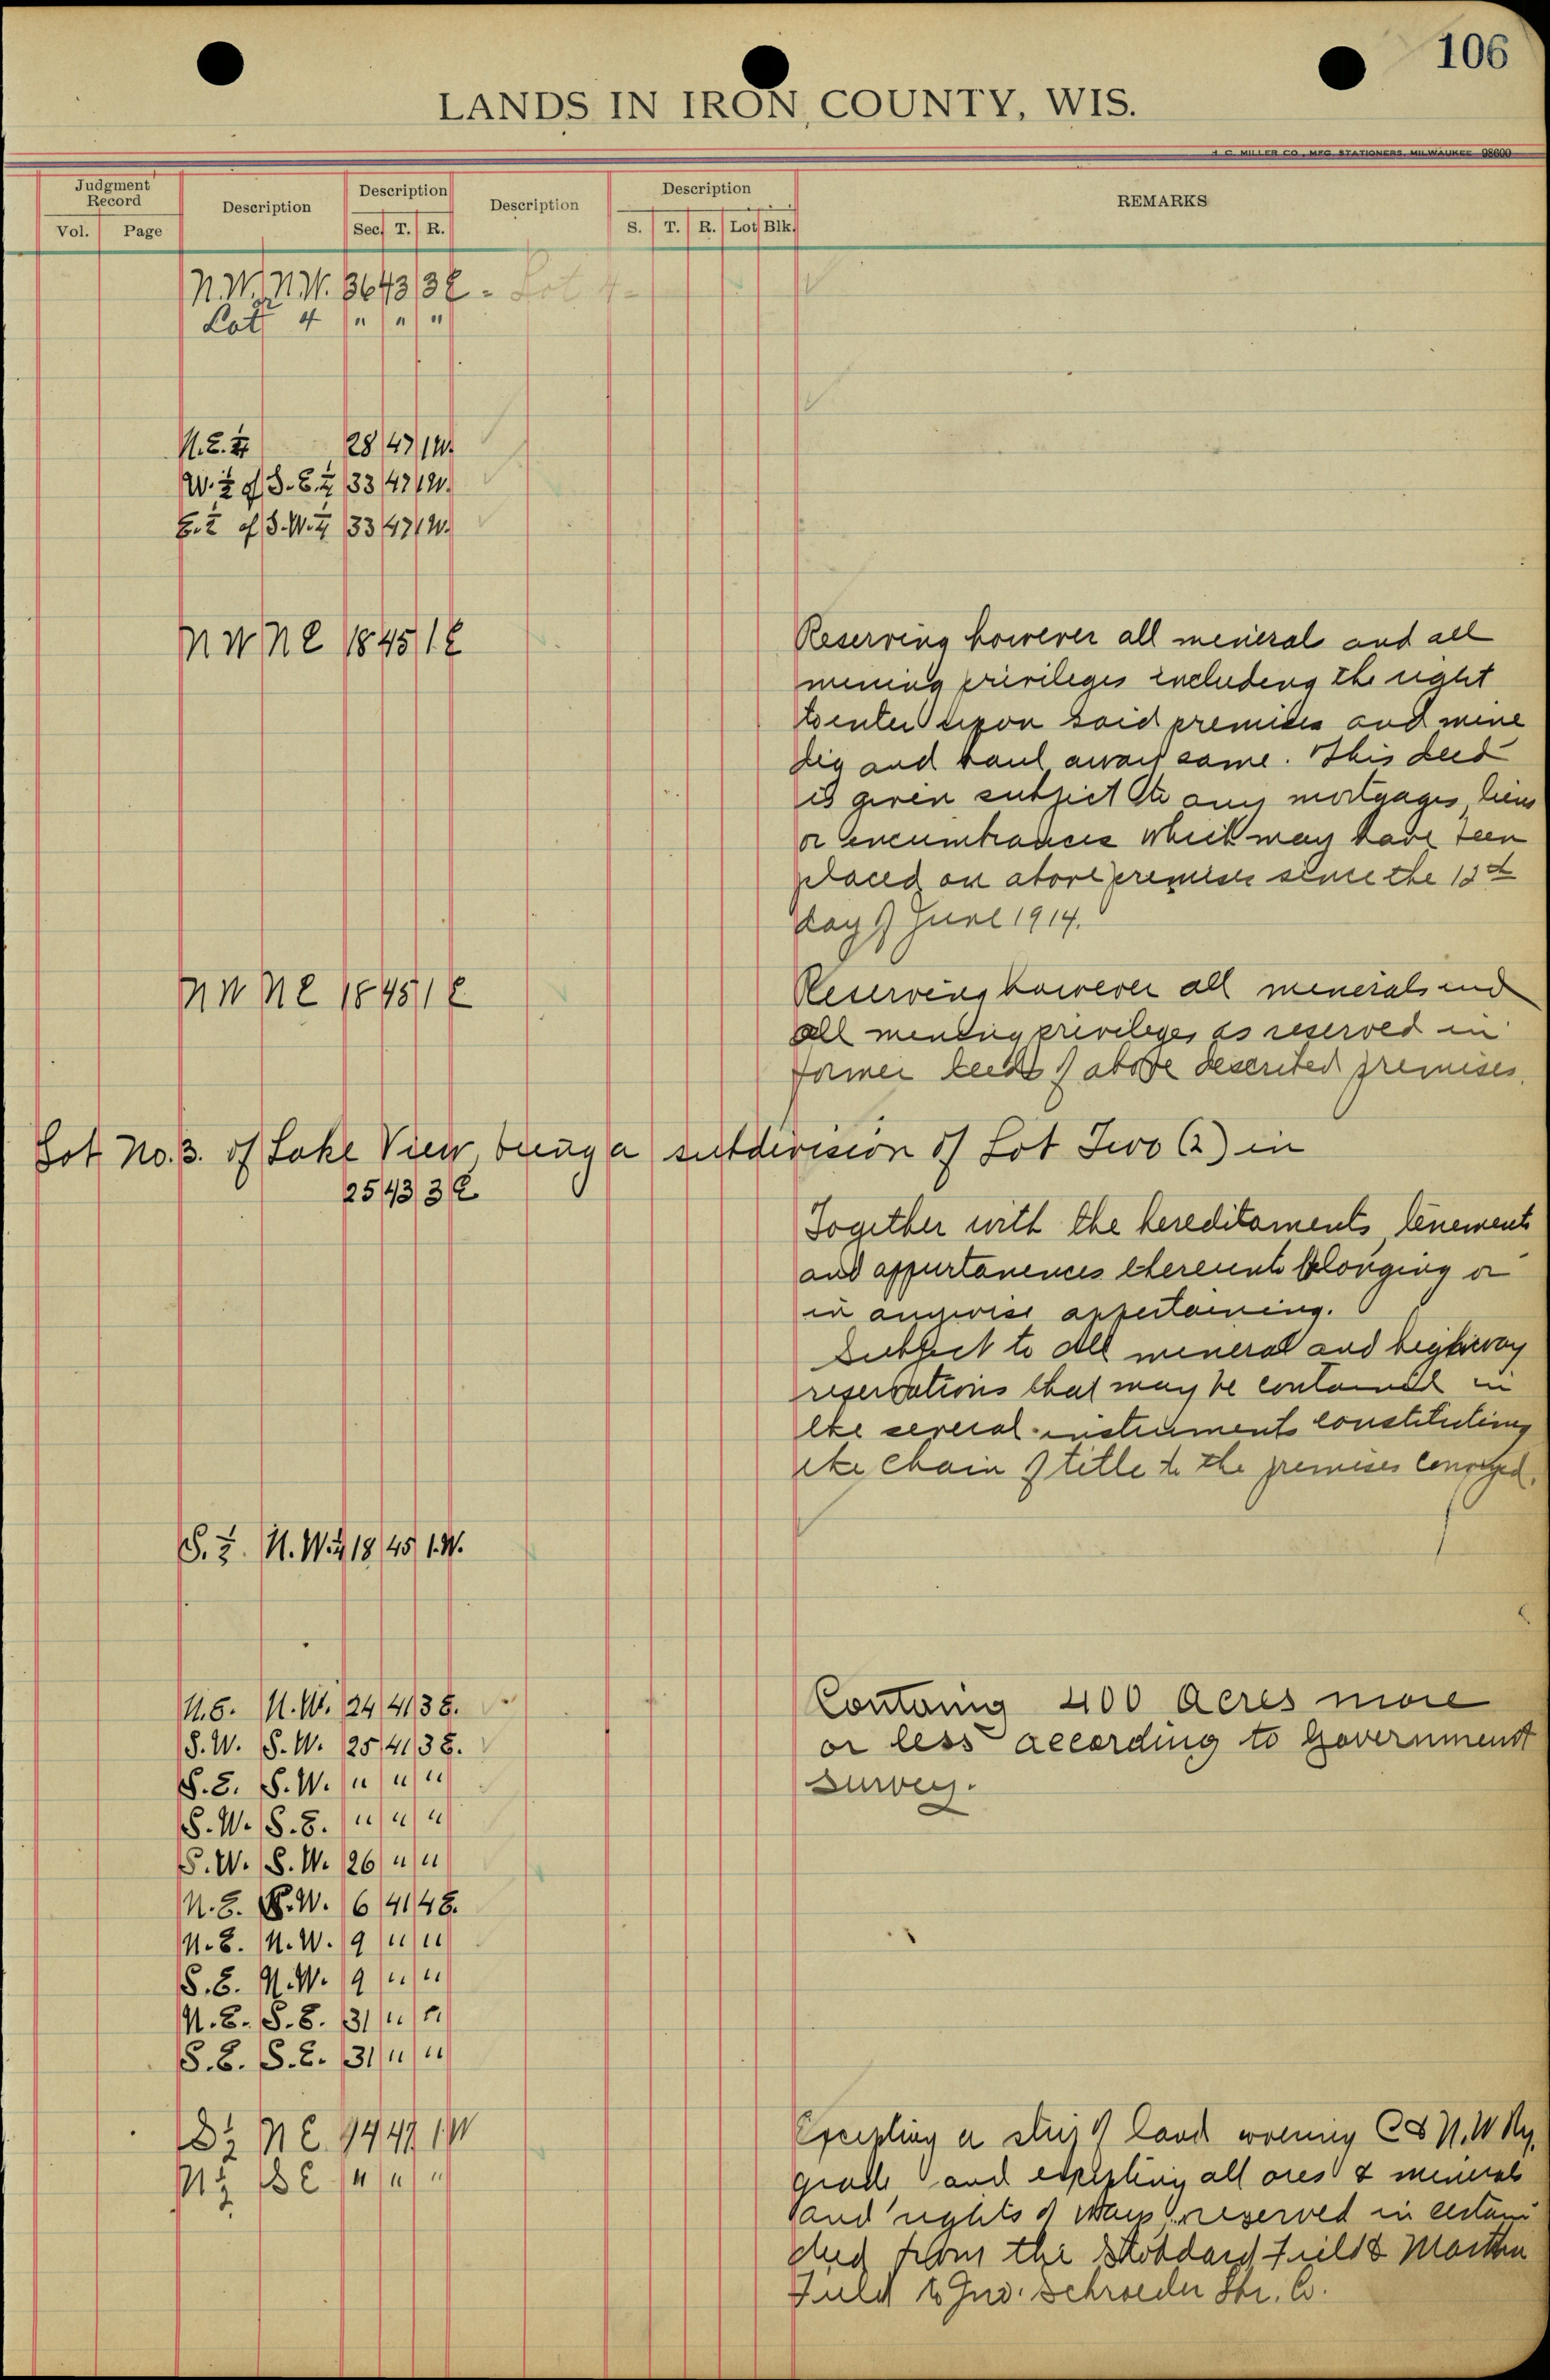 106
LANDS IN IRON COUNTY, WIS.
H. C. MILLER CO., MFG. STATIONERS, MILWAUKEE 98600
Judgment Record Description Description Description Description REMARKS
Vol. Page Sec. T. R. S. T. R. Lot Blk.
N.W. N.W. 36 43 3E - Lot 4-
Lot 4 " " "
N.E. ¼ 28 47 1W.
W. ½ of S.E. ¼ 33 47 1W.
E. ½ of S.W. ¼ 33 47 1W.
NW NE 18 45 1E
Reserving however all mineral and all
mining privileges including the right
to enter upon said premises and mine
dig and haul away same. This deed
is given subject to any mortgages, liens
or encumbrances which may have been
placed on above premises since the
day of June 1914.
NW NE 18 45 1E
Reserving however all minerals and
all mining privileges as reserved in
former deeds of above described premises.
Lot No. 3. of Lake View, being a subdivision of Lot Two (2) in
25 43 3E
Together with the hereditaments, tenements
and appurtanences thereunto belonging or
in anywise appertaining.
Subject to all mineral and highway
reservations that may be contained in
the several instruments constituting
the chain of title to the premises conveyed.
S. ½ N.W. ¼ 18 45 1.W.
N.E. N.W. 24 41 3E.
S.W. S.W. 25 41 3E.
S.E. S.W. " " "
S.W. S.E. " " "
S.W. S.W. 26 " "
N.E. S.W. 6 41 4E.
N.E. N.W. 9 " "
S.E. N.W. 9 " "
N.E. S.E. 31 " "
S.E. S.E. 31 " "
Containg 400 acres more
or less according to Government
survey.
S½ NE 9 47 1W
N½ SE " " "
Excepting a strip of land C & N.W Ry.
grade and excepting all ores & minerals
and rights of ways reserved in certain
deed from the Stoddard, Field & Martha
Field to Jno. Schroeder Lbr. Co.